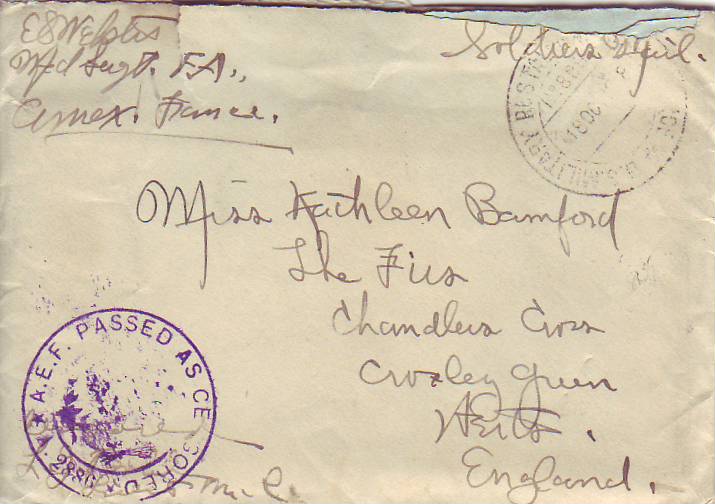 E S Webster
Med Dept. F.A.,
Amex. France.
Soldiers Mail.
U.S. MILITARY POST
18 DEC
Miss Kathleen Bamford
The Firs
Chandlers Cross
Croxley Green
Herts.
England.
A.E.F. PASSED AS CENSORED